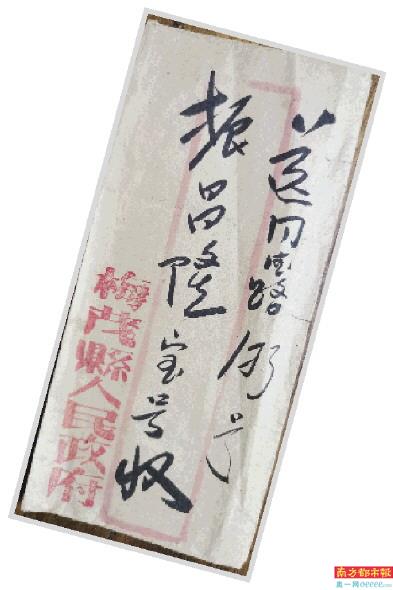 路 号
振昌隆宝号收
梅茂縣人民政府
南方都市報
奥一网oeeee.com